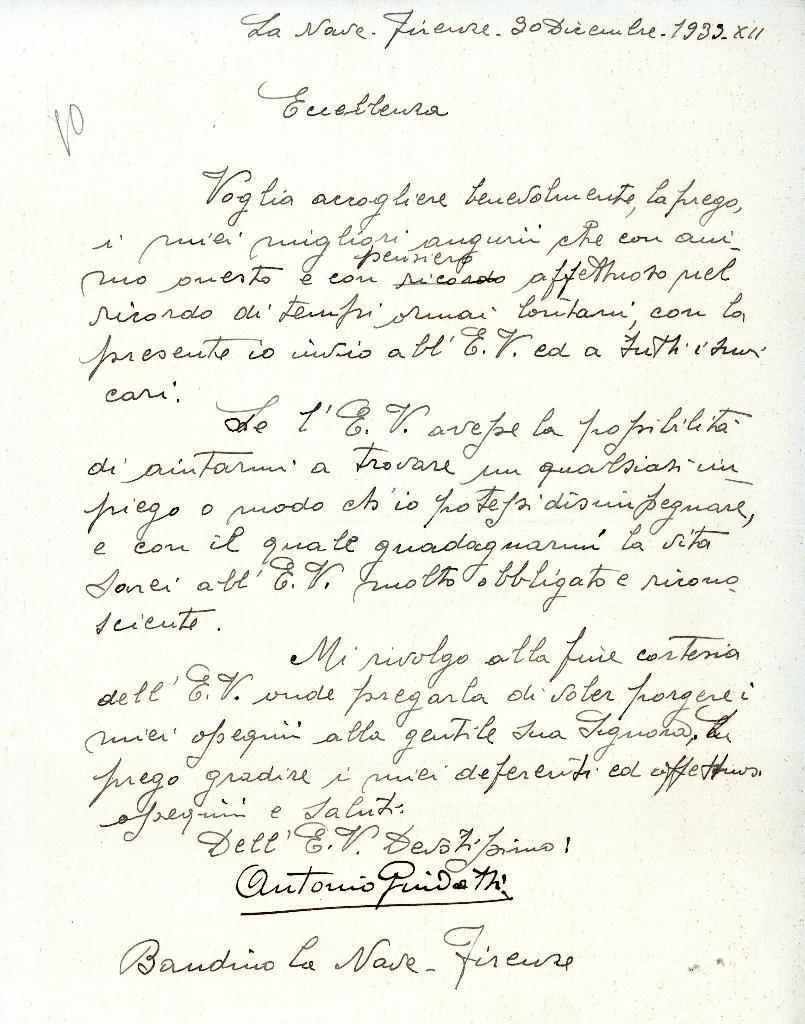 La Nave - Firenze - 30 Dicembre - 1933 - XII
Eccellenza
Voglia accogliere benevolmente, la prego,
i miei migliori augurii che con ani-
mo onesto e con ricordo affettuoso nel
pensiero
ricordo di tempi ormai lontani, con la
presente io invio all' E. V. ed a tutti i suoi
cari.
Se l' E. V. avesse la possibilità
di aiutarmi a trovare un qualsiasi im-
piego o modo ch'io potessi disimpegnare,
e con il quale guadagnarmi la vita
sarei all' E. V. molto obbligato e ricono-
sciente.
Mi rivolgo alla fine cortesia
dell' E. V. onde pregarla di voler porgere i
miei ossequii alla gentile sua Signora, La
prego gradire i miei deferenti ed affettuosi
ossequii e saluti.
Dell' E. V. Devotissimo!
Antonio Guidotti
Bandino la Nave - Firenze